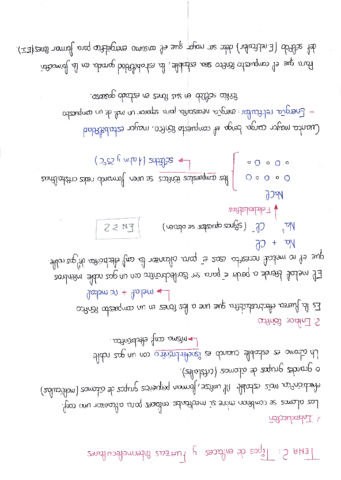 TEMA 2: Tipos de enlaces y Fuerzas Intermoleculares
1 Introducción
Los átomos se combinan entre sí mediante enlaces para alcanzar una conf.
electrónica más estable. Al unirse, forman pequeños grupos de átomos (moléculas)
o grandes grupos de átomos (cristales).
Un átomo es estable cuando es isoelectrónico con un gas noble
↳ misma conf. electrónica.
2 Enlace iónico
Es la fuerza electrostática que une a los iones en un compuesto iónico
↳ metal + no metal
El metal tiende a perder e⁻ para ser isoelectrónico con un gas noble mientras
que el no metal necesita esos e⁻ para alcanzar la conf. electrónica del gas noble
Na + Cl
Na⁺ Cl⁻ (signos opuestos se atraen)
EN ≥ 2
F electrostática
NaCl
Los compuestos iónicos se unen formando redes cristalinas
→ sólidos (1 atm y 25°C)
Cuanta mayor carga tenga el compuesto iónico, mayor estabilidad
- Energía reticular: energía necesaria para separar un mol de un compuesto
iónico sólido en sus iones en estado gaseoso.
Para que el compuesto iónico sea estable, la estabilidad ganada en la formación
del sólido (E reticular) debe ser mayor que el consumo energético para formar iones (EI)